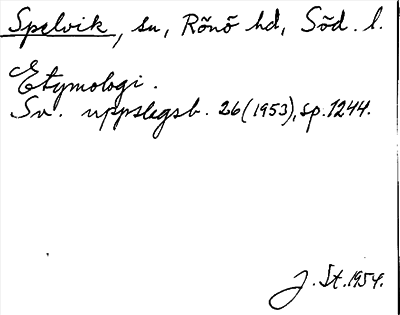 Spelvik, sn, Rönö hd, Söd. l.
Etymologi.
Sv. uppslagsb. 26 (1953), sp. 1244.
J. St. 1954.